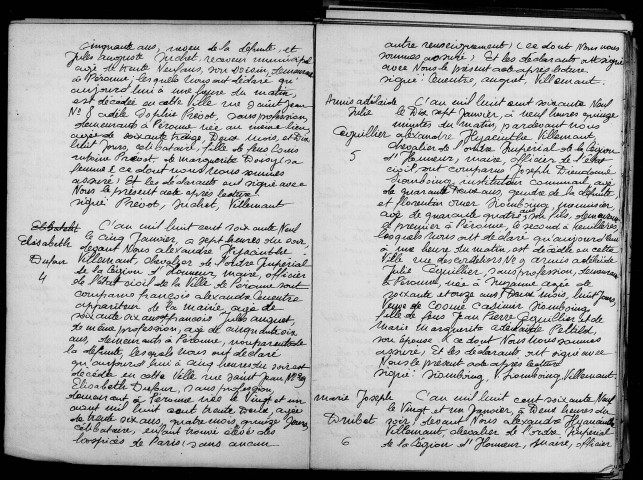 cinquante ans, neveu de la défunte, et
Jules Auguste Judret, receveur municipal
agé de trente neuf ans, son voisin, demeurant
à Péronne; lesquels nous ont déclaré qu'
aujourd'hui à une heure du matin
est décédée en cette Ville rue Saint Jean
N° 8 adèle Sophie Prévot, sans profession,
demeurante à Péronne née au même lieu,
agée de soixante treize, Deux mois, et Dix
huit Jours, célibataire, fille de feus Cons
Prévot, et Marguerite
femme; ce dont nous nous sommes
assuré; Et les déclarants ont signé avec
Nous le présent acte après lecture.
signé: Prévot, Judret, Villemant
Elisabeth
Elisabeth
Dufour
4
C'an mil huit cent soixante Neuf
le Cinq Janvier, à sept heures du soir,
devant Nous alexandre Hyacinthe
Villemant, chevalier de l'ordre Impérial
de la Légion d'Honneur, maire, officier
de l'état civil de la Ville de Péronne sont
comparus françois alexandre Ceventre
appariteur de la mairie, agé de
soixante six ans, françois Jules auguet,
de même profession, agé de cinquante six
ans, demeurants à Péronne, non parents de
la défunte, lesquels nous ont déclaré
qu'aujourd'hui à cinq heures du soir est
décédée en cette Ville rue Saint Jean N° 29
Elisabeth Dufour, sans profession,
demeurant à Péronne née le Vingt et un
avant mil huit cent trente Deux, agée
de trente six ans, quatre mois, quinze Jours,
célibataire, enfant trouvé élevé des
hospices de Paris; sans aucun
autre renseignement; (ce dont Nous nous
sommes assuré); Et les déclarants ont signé
avec Nous le présent acte après lecture
signé: Ceventre, auguet, Villemant.
Armis adélaïde
Julie
Cequillier
5
C'an mil huit cent soixante Neuf
le Dix sept Janvier, à neuf heures quinze
minutes du matin, par devant nous
alexandre Hyacinthe Villemant,
Chevalier de l'ordre Impérial de la Légion
d'Honneur, maire, officier de l'état
civil, ont comparu Joseph Dieudonné
Hombring, instituteur communal, agé
de quarante ans, gendre de la défunte
et florentin omer Hombring, menuisier,
agé de quarante quatre ans, son fils, demeurant
le premier à Péronne, le second à
lesquels nous ont déclaré qu'aujourd'hui
à une heure du matin est décédée en cette
Ville rue des cordeliers N° 9 armis adélaïde
Julie Cequillier, sans profession, demeurant
à Péronne, née à agée de
soixante et onze ans, Deux mois, huit Jours,
Veuve de Cosme Casimir Hombring,
fille de feus Jean Pierre Cequillier et de
Marie Marguerite adélaïde
son épouse; (ce dont Nous Nous sommes
assuré; Et les déclarants ont signé avec
Nous le présent acte après lecture
signé: Hombring, Hombring, Villemant.
Marie Joseph
Drubet
6
C'an mil huit cent soixante Neuf
le Vingt et un Janvier, à Deux heures du
soir; devant Nous alexandre Hyacinthe
Villemant, chevalier de l'ordre Impérial
de la Légion d'Honneur, maire, officier